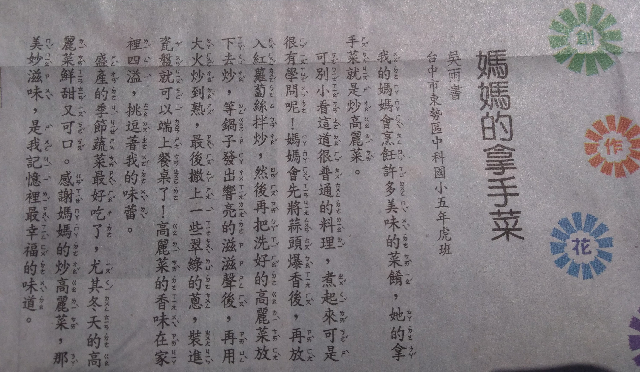 創
作
花
媽媽的拿手菜
吳雨書
台中市東勢區中科國小五年虎班
我的媽媽會烹飪許多美味的菜餚,她的拿
手菜就是炒高麗菜。
可別小看這道很普通的料理,煮起來可是
很有學問呢!媽媽會先將蒜頭爆香後,再放
入紅蘿蔔絲拌炒,然後再把洗好的高麗菜放
下去炒,等鍋子發出響亮的滋滋聲後,再用
大火炒到熟,最後撒上一些翠綠的蔥,裝進
瓷盤就可以端上餐桌了!高麗菜的香味在家
裡四溢,挑逗著我的味蕾。
盛產的季節蔬菜最好吃了,尤其冬天的高
麗菜鮮甜又可口。感謝媽媽的炒高麗菜,那
美妙滋味,是我記憶裡最幸福的味道。